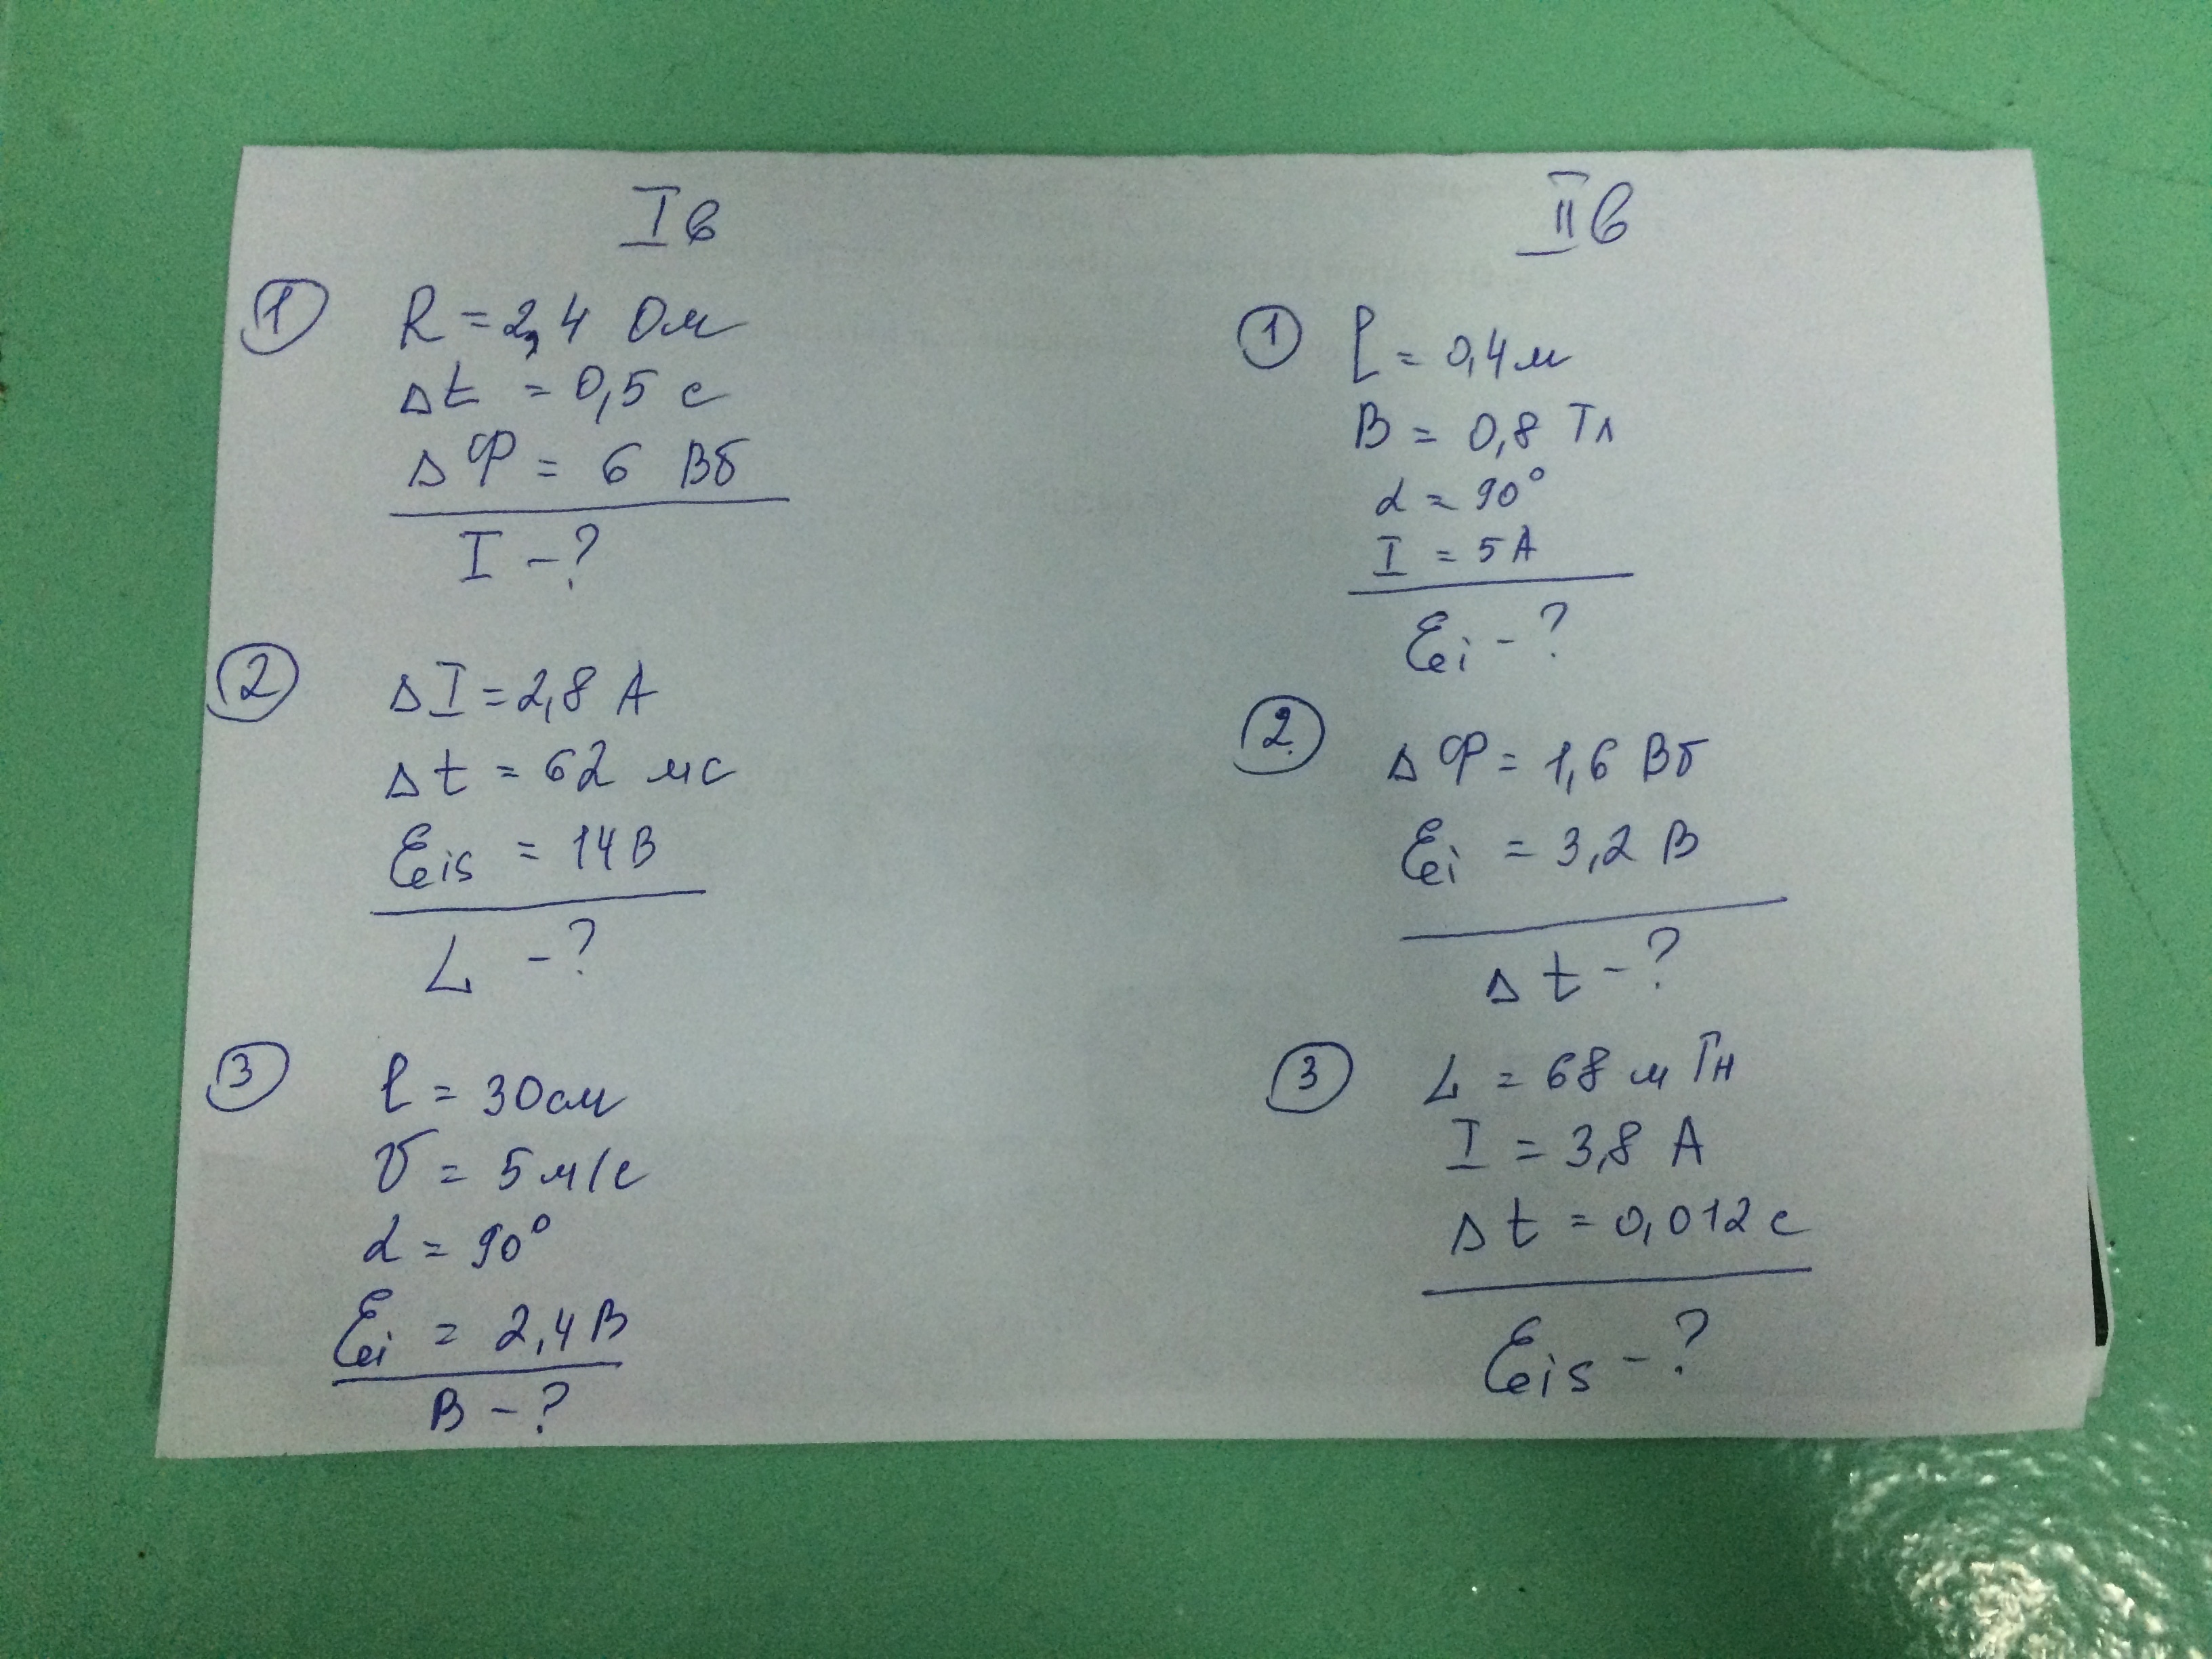 I в
① R = 2,4 Ом
Δt = 0,5 с
ΔФ = 6 Вб
I - ?
② ΔI = 2,8 А
Δt = 62 мс
Eis = 14 В
L - ?
③ l = 30 см
υ = 5 м/с
α = 90°
Ei = 2,4 В
B - ?
II в
① l = 0,4 м
B = 0,8 Тл
α = 90°
I = 5 А
Ei - ?
② ΔФ = 1,6 Вб
Ei = 3,2 В
Δt - ?
③ L = 68 мГн
I = 3,8 А
Δt = 0,012 с
Eis - ?